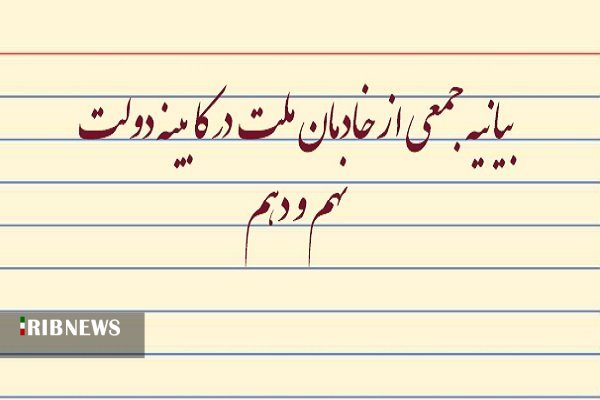 بیانیه جمعی از خادمان ملت در کابینه دولت
نهم و دهم
IRIBNEWS